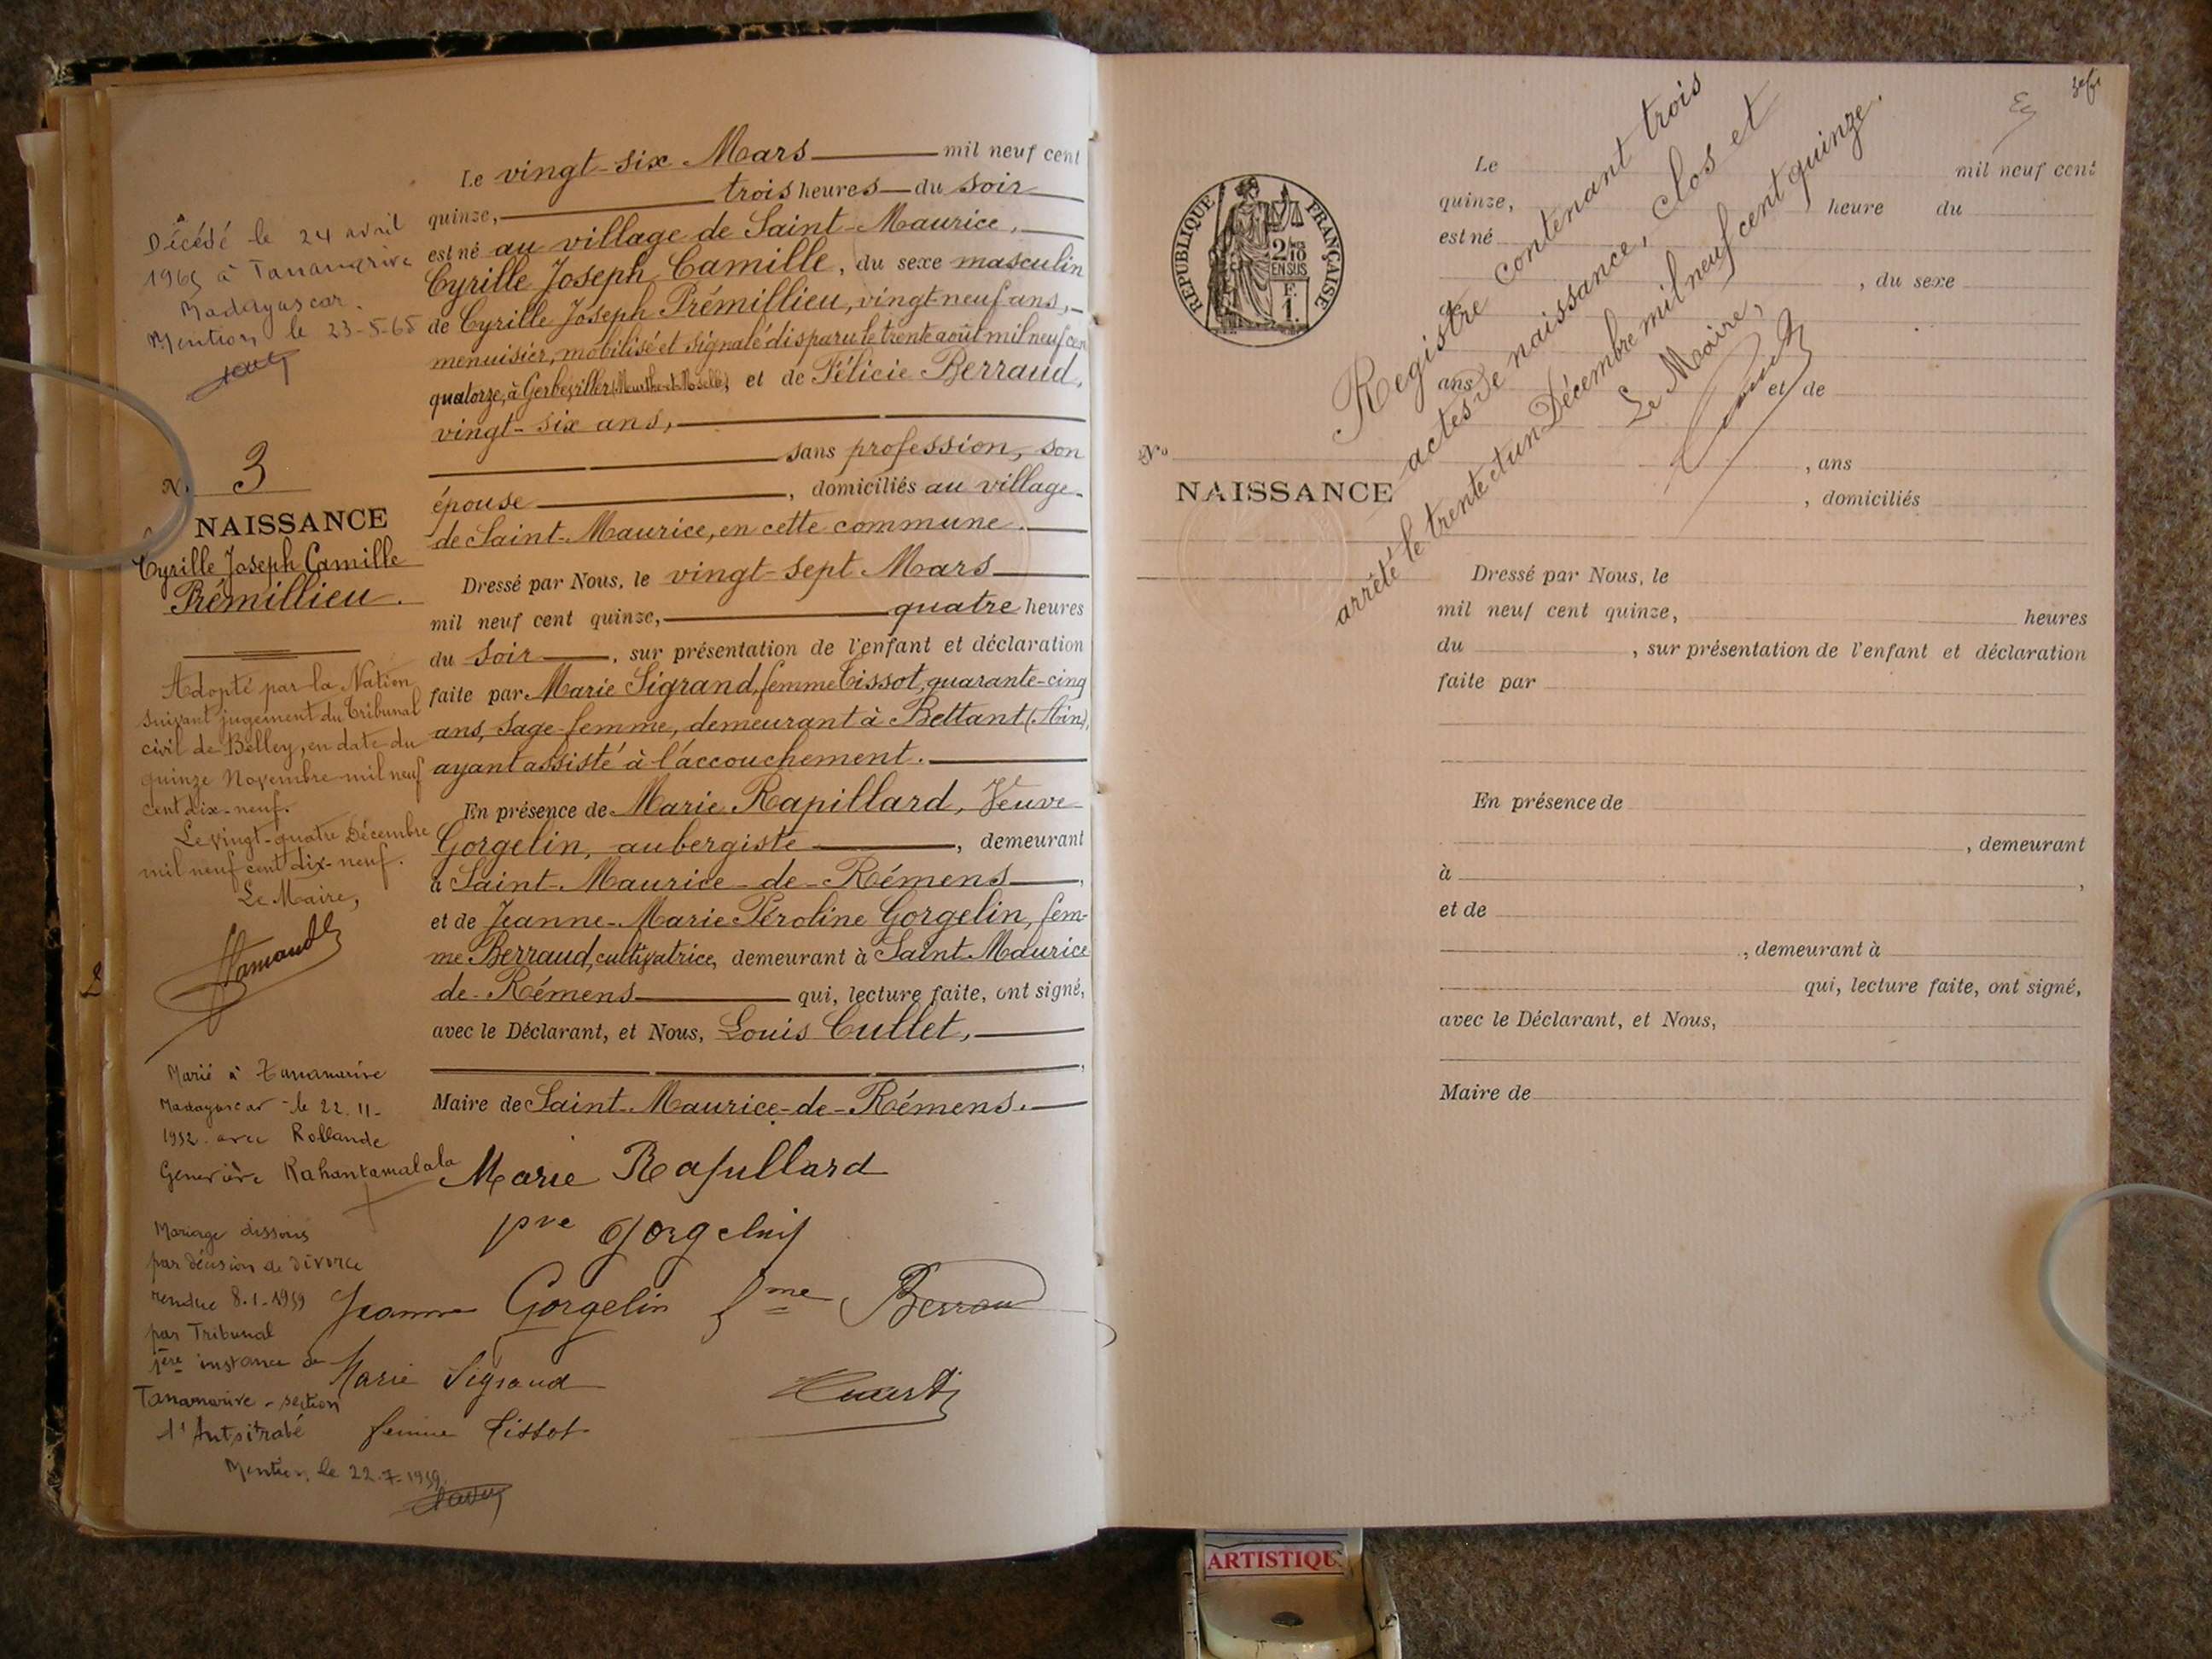 Décédé le 24 avril
1965 à Tananarive
Madagascar.
Mention le 23-5-65
N. 3
NAISSANCE
Cyrille Joseph Camille
Prémillieu.
Adopté par la Nation
suivant jugement du Tribunal
civil de Belley, en date du
quinze Novembre mil neuf
cent dix-neuf.
Le vingt-quatre Décembre
mil neuf cent dix-neuf.
Le Maire,
Marié à Tananarive
Madagascar - le 22.11-
1952 avec Rollande
Geneviève Rahantamalala
Mariage dissous
par décision de divorce
rendue 8.1-1959
par Tribunal
1ère instance de
Tananarive - section
d'Antsirabé
Mention, le 22.7-1959
Le vingt-six Mars mil neuf cent
quinze, trois heures du soir
est né au village de Saint-Maurice,
Cyrille Joseph Camille, du sexe masculin
de Cyrille Joseph Prémillieu, vingt-neuf ans,
menuisier, mobilisé et signalé disparu le trente août mil neuf cent
quatorze, à Gerbeviller (Meurthe-et-Moselle), et de Félicie Berraud,
vingt-six ans,
sans profession, son
épouse, domiciliés au village
de Saint-Maurice, en cette commune.
Dressé par Nous, le vingt-sept Mars
mil neuf cent quinze, quatre heures
du soir, sur présentation de l'enfant et déclaration
faite par Marie Sigrand, femme Tissot, quarante-cinq
ans, sage-femme, demeurant à Bettant (Ain),
ayant assisté à l'accouchement.
En présence de Marie Rapillard, Veuve
Gorgelin, aubergiste, demeurant
à Saint-Maurice-de-Rémens,
et de Jeanne-Marie Péroline Gorgelin, fem-
me Berraud, cultivatrice, demeurant à Saint-Maurice
de-Rémens qui, lecture faite, ont signé,
avec le Déclarant, et Nous, Louis Cullet,
Maire de Saint-Maurice-de-Rémens.
Marie Rapillard
Gorgelin
Jeanne Gorgelin fme Berraud
Marie Sigrand
femme Tissot
RÉPUBLIQUE FRANÇAISE
2/10
EN SUS
F.
1.
Registre contenant trois
actes de naissance, clos et
arrêté le trente et un Décembre mil neuf cent quinze.
Le Maire,
No
NAISSANCE
Le mil neuf cent
quinze, heure du
est né
, du sexe
de
ans et de
, ans
, domiciliés
Dressé par Nous, le
mil neuf cent quinze, heures
du , sur présentation de l'enfant et déclaration
faite par
En présence de
, demeurant
à ,
et de
, demeurant à
qui, lecture faite, ont signé,
avec le Déclarant, et Nous,
Maire de
ARTISTIQU